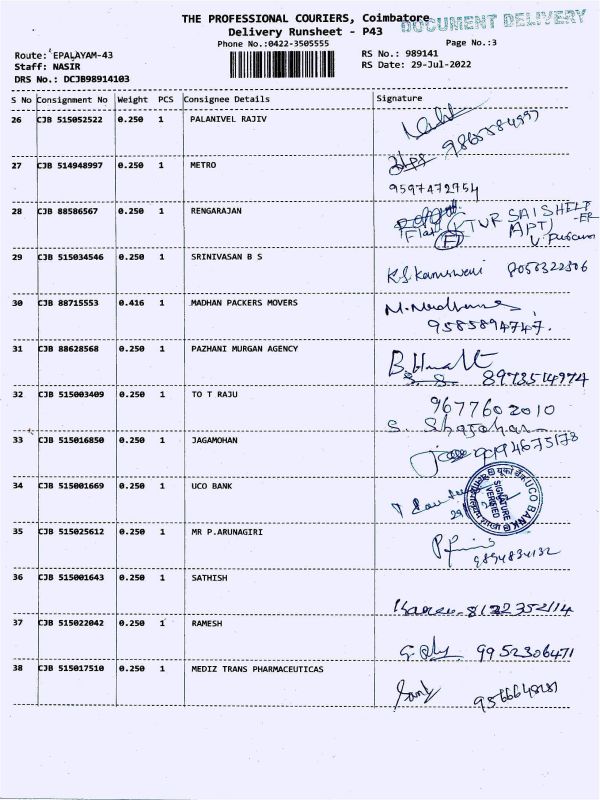 THE PROFESSIONAL COURIERS, Coimbatore
DOCUMENT DELIVERY
Delivery Runsheet - P43
Phone No.:0422-3505555
Page No.:3
Route: EPALAYAM-43
RS No.: 989141
Staff: NASIR
RS Date: 29-Jul-2022
DRS No.: DCJB98914103
S No Consignment No Weight PCS Consignee Details Signature
26 CJB 515052522 0.250 1 PALANIVEL RAJIV
27 CJB 514948997 0.250 1 METRO
9597472754
28 CJB 88586567 0.250 1 RENGARAJAN
KTVR SAI SHELT
-ER
Flat F1 APT)
29 CJB 515034546 0.250 1 SRINIVASAN B S
30 CJB 88715553 0.416 1 MADHAN PACKERS MOVERS
9585894747.
31 CJB 88628568 0.250 1 PAZHANI MURGAN AGENCY
8973514974
32 CJB 515003409 0.250 1 TO T RAJU
9677602010
33 CJB 515016850 0.250 1 JAGAMOHAN
34 CJB 515001669 0.250 1 UCO BANK
UCO BANK
SIGNATURE
VERIFIED
35 CJB 515025612 0.250 1 MR P.ARUNAGIRI
9894834132
36 CJB 515001643 0.250 1 SATHISH
37 CJB 515022042 0.250 1 RAMESH
9952306471
38 CJB 515017510 0.250 1 MEDIZ TRANS PHARMACEUTICAS